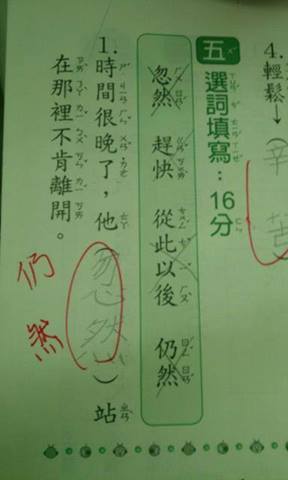 4. 輕鬆→(辛苦
五 選詞填寫：16分
忽然 趕快 從此以後 仍然
1. 時間很晚了，他（忽然）站
在那裡不肯離開。
然